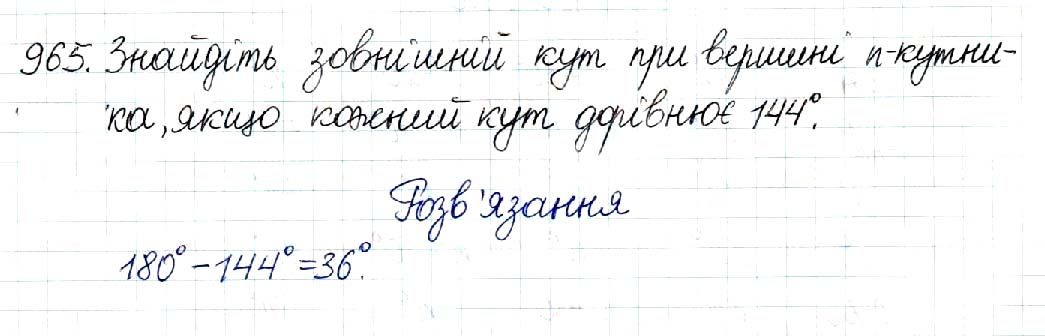 965. Знайдіть зовнішній кут при вершині n-кутни-
ка, якщо кожний кут дорівнює 144°.
Розв'язання
180° - 144° = 36°.